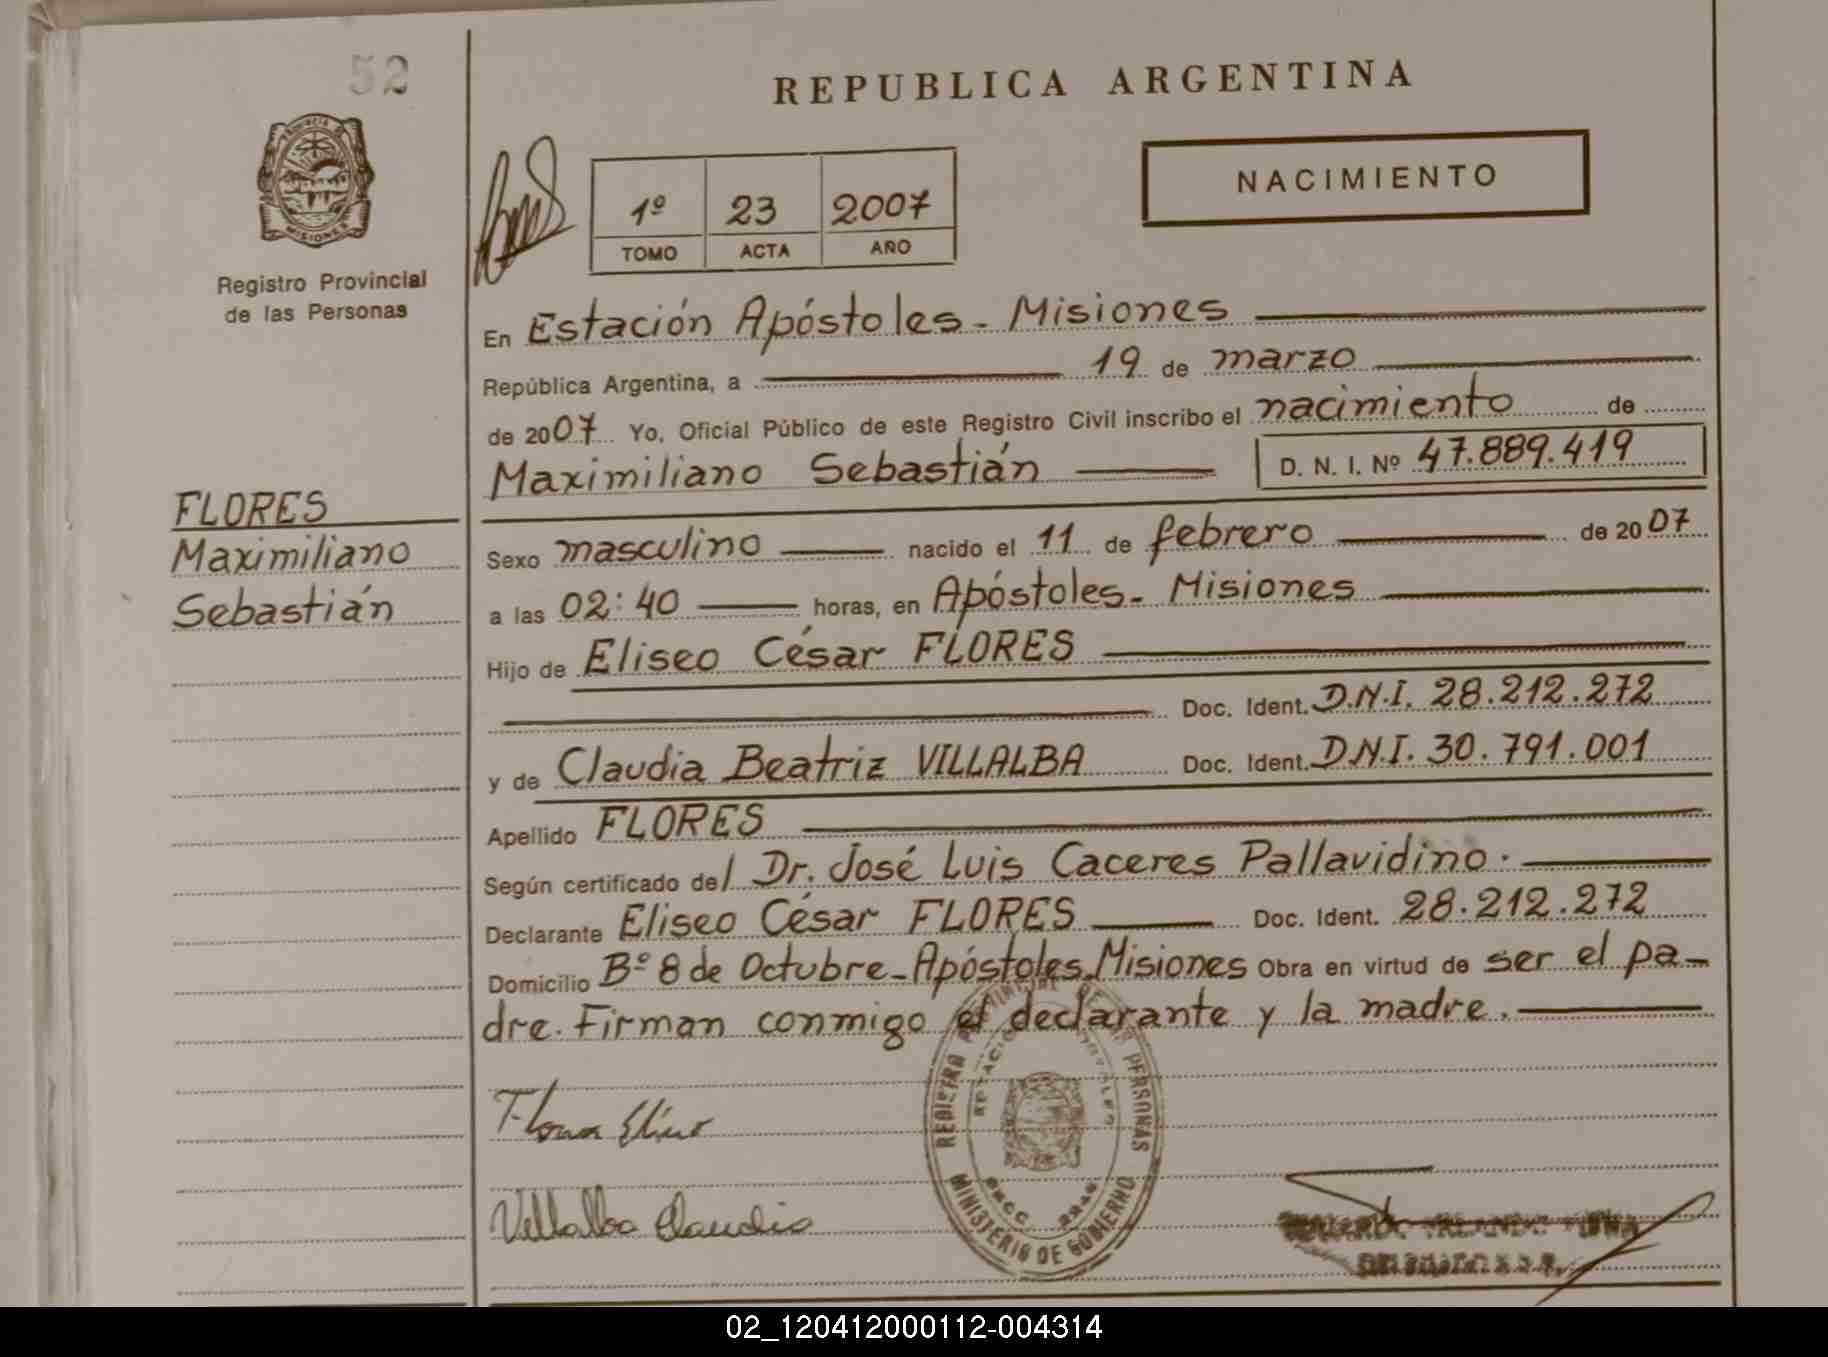 52
REPUBLICA ARGENTINA
NACIMIENTO
1º 23 2007
TOMO ACTA AÑO
MISIONES
Registro Provincial
de las Personas
En Estación Apóstoles - Misiones
República Argentina, a 19 de marzo
de 2007 Yo, Oficial Público de este Registro Civil inscribo el nacimiento de
Maximiliano Sebastián D. N. I. Nº 47.889.419
FLORES
Maximiliano
Sebastián
Sexo masculino nacido el 11 de febrero de 2007
a las 02:40 horas, en Apóstoles - Misiones
Hijo de Eliseo César FLORES
Doc. Ident. D.N.I. 28.212.272
y de Claudia Beatriz VILLALBA Doc. Ident. D.N.I. 30.791.001
Apellido FLORES
Según certificado del Dr. José Luis Caceres Pallavidino.
Declarante Eliseo César FLORES Doc. Ident. 28.212.272
Domicilio Bº 8 de Octubre - Apóstoles Misiones Obra en virtud de ser el pa-
dre. Firman conmigo el declarante y la madre.
DE LAS PERSONAS
MINISTERIO DE GOBIERNO
Villalba Claudia
02_120412000112-004314